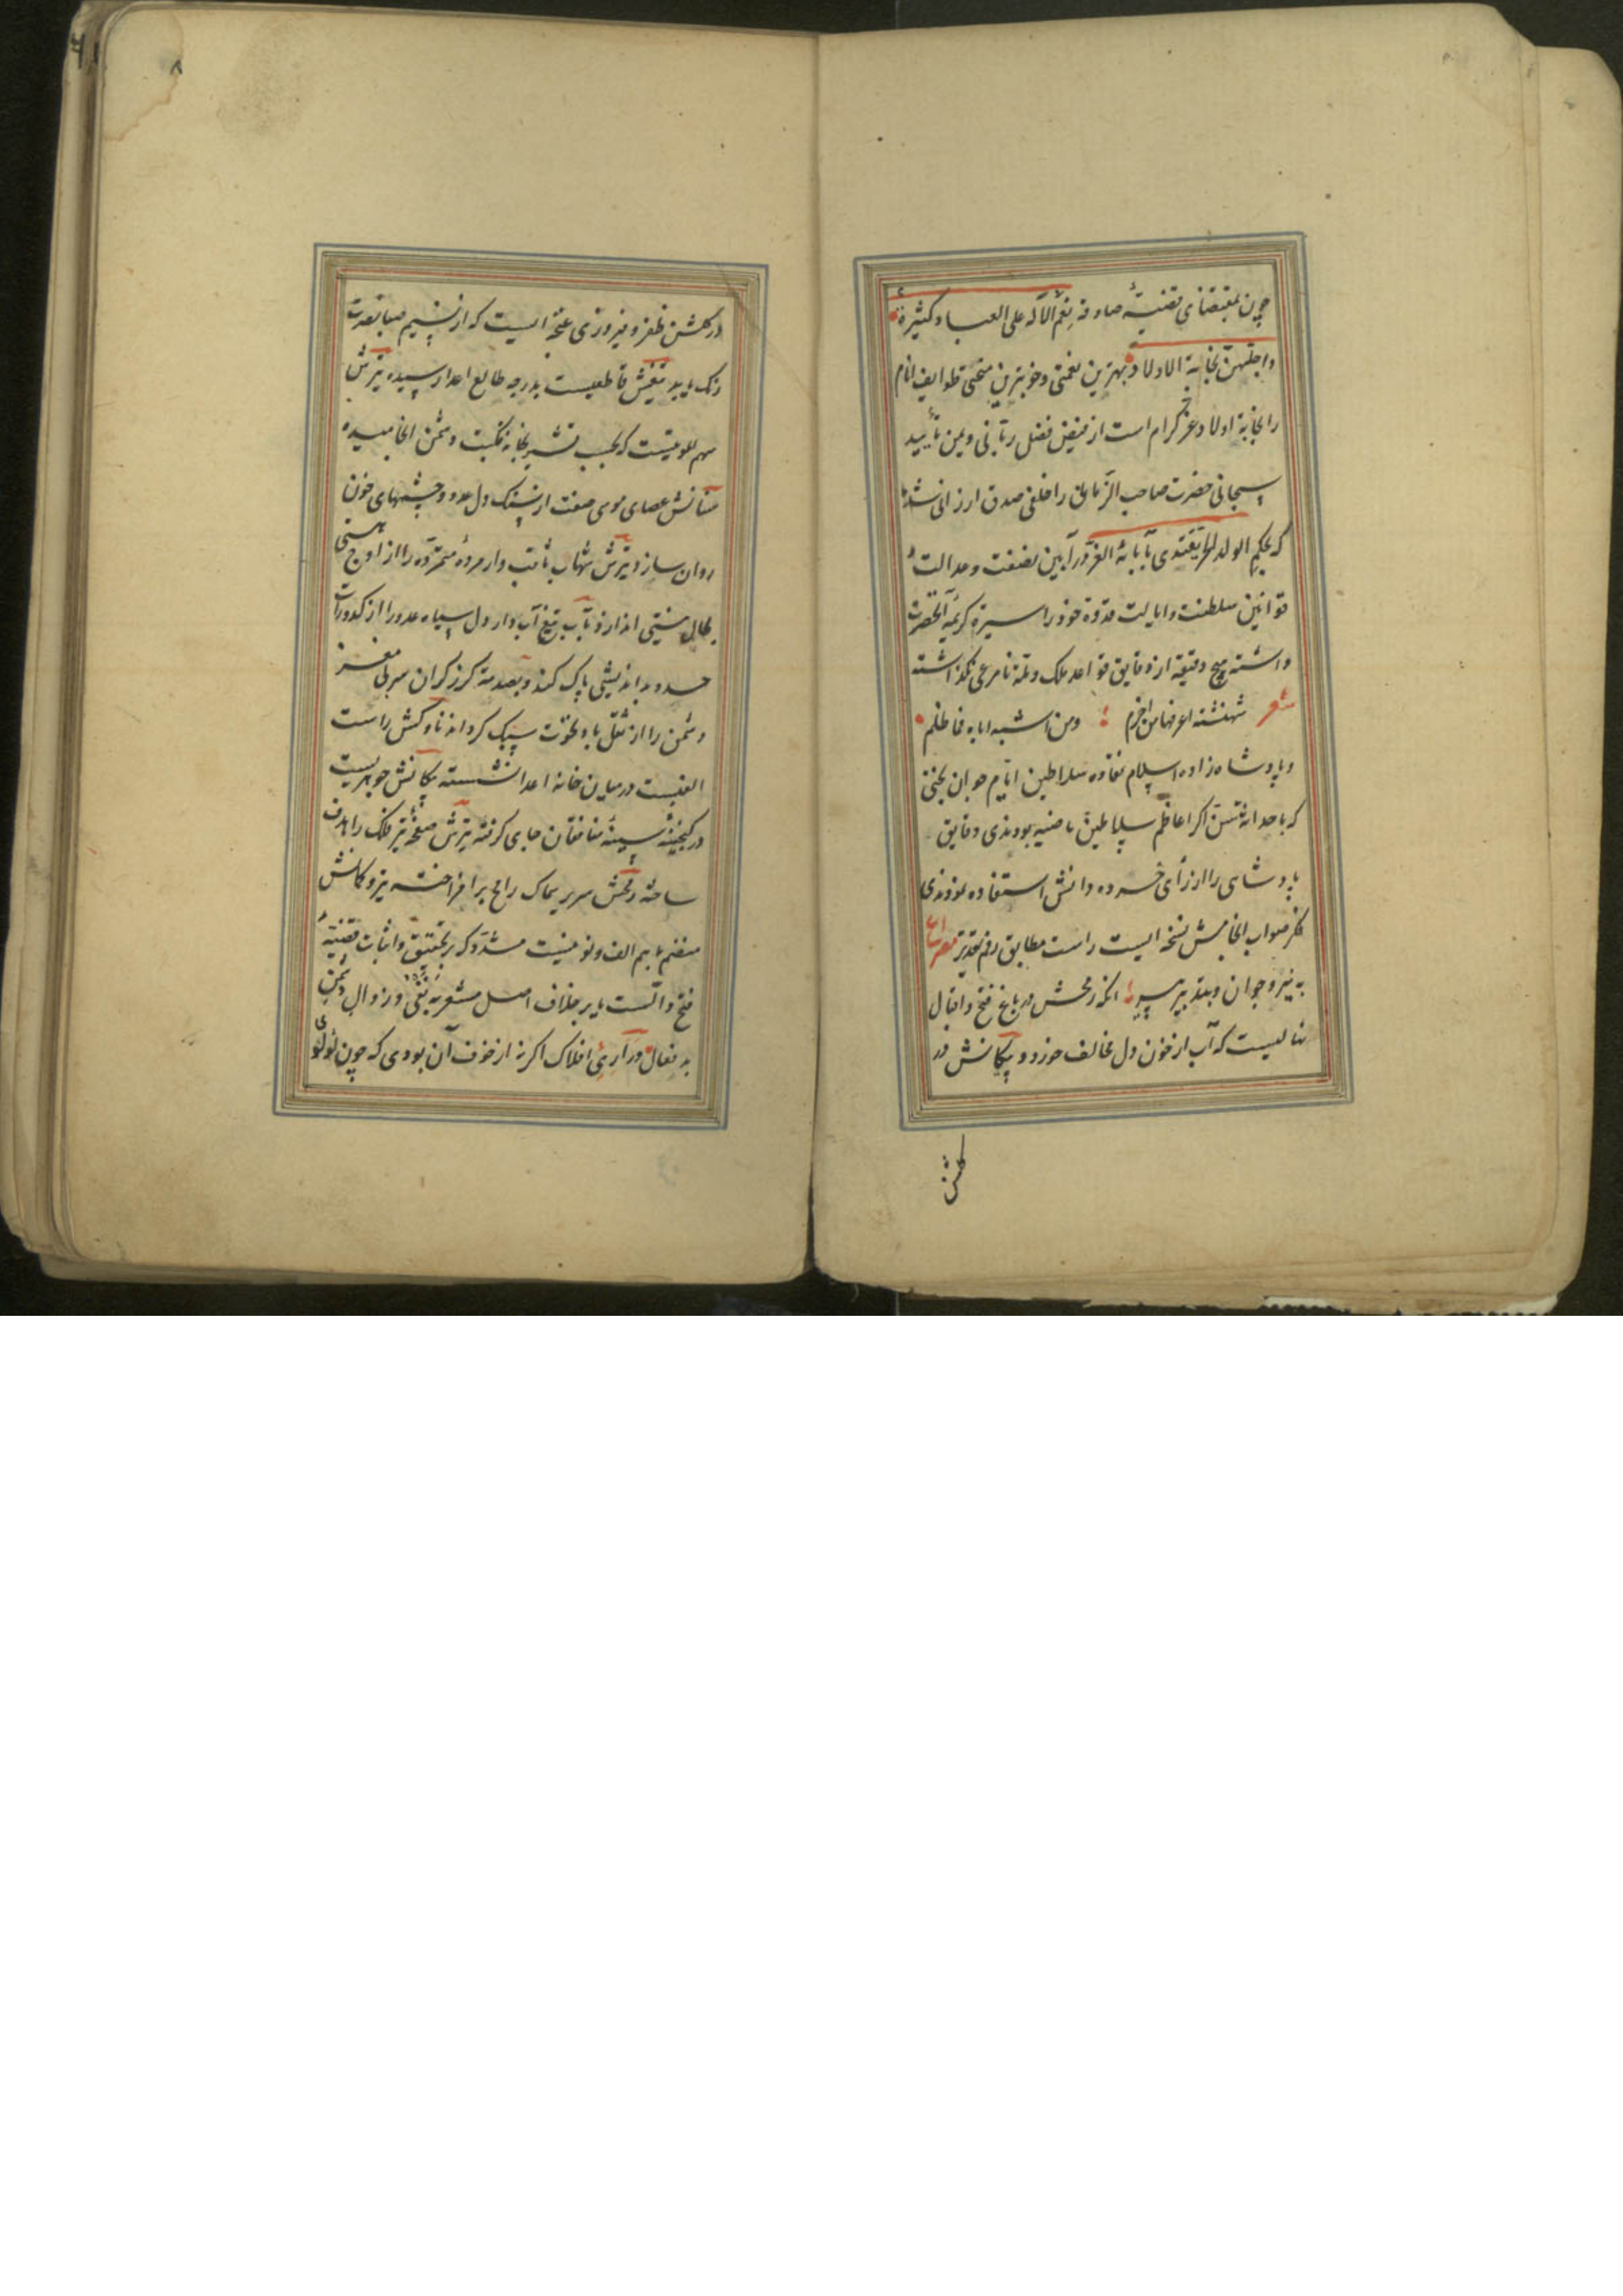 چون بمقتضای قضیهٔ صادقه نعم الآله علی العباد کثیرة
واجلهن نجابة الاولاد بهترین نعمتی وخوبترین منحتی طوایف انام
را نجابة اولاد عز کرام است از فیض فضل ربانی ویمن تأیید
سبحانی حضرت صاحب الزمان را خلفی صدق ارزانی شده
که بحکم الولد الحر یقتدی بآبائه الغر در آیین نصفت وعدالت
قوانین سلطنت وایالت قدوهٔ خود را سیرة کریمهٔ آنحضرت
داشته هیچ دقیقه از دقایق قواعد ملک وملة نامرعی نگذاشته
شعر شهنشنه اعرفها من اخزم ومن اشبه اباه فما ظلم
وپادشاه زاده اسلام نقاوه سلاطین ایام جوان بختی
که باحداثة سن اکر اعاظم سلاطین ماضیه بودندی دقایق
پادشاهی را از رأی خرده دانش استفاده نمودندی
فکر صواب انجامش نسخه ایست راست مطابق رقم تقدیر مصراع
به نیرو جوان وبتدبیر پیر انکه رمحش در باغ فتح واقبال
نهالیست که آب از خون دل مخالف خورد وپیکانش در
کلشن
۸
در کلشن ظفر وفیروزی غنچه ایست که از نسیم صبا نصرت
رنک یابد تیغش قاطعیست بدرجه طالع اعدا رسیده تیرش
سهم که بحسب بخانه نکبت دشمن انجامیده
سنانش عصای موسی صفت از سنک دل عدو چشمهای خون
روان سازد تیرش شهاب ثاقب وار مردهٔ متمرده را از اوج هستی
نیستی اندازد بآب تیغ آب دار دل سیاه عدو را از کدورات
حسد وبد اندیشی پاک کند وبصدمهٔ کرز کران سر بی مغز
دشمن را از ثقل باد نخوت سبک کرداند ناوکش راست
الفیست در میان خانهٔ اعدا نشسته پیکانش جوهریست
در کنجینهٔ سینهٔ منافقان جای کرفته تیرش صفحهٔ تیر فلک را هدف
ساخته رمحش سر بر سماک رامح برافراخته تیر وکمانش
منضم با هم الف ونونیست مشدد که بر تحقیق واثبات قضیهٔ
فتح دالست یا بر خلاف اصل مشعر به نفی وزوال دشمن
بد فعال دراری افلاک اکر نه از خوف آن بودی که چون لؤلؤی